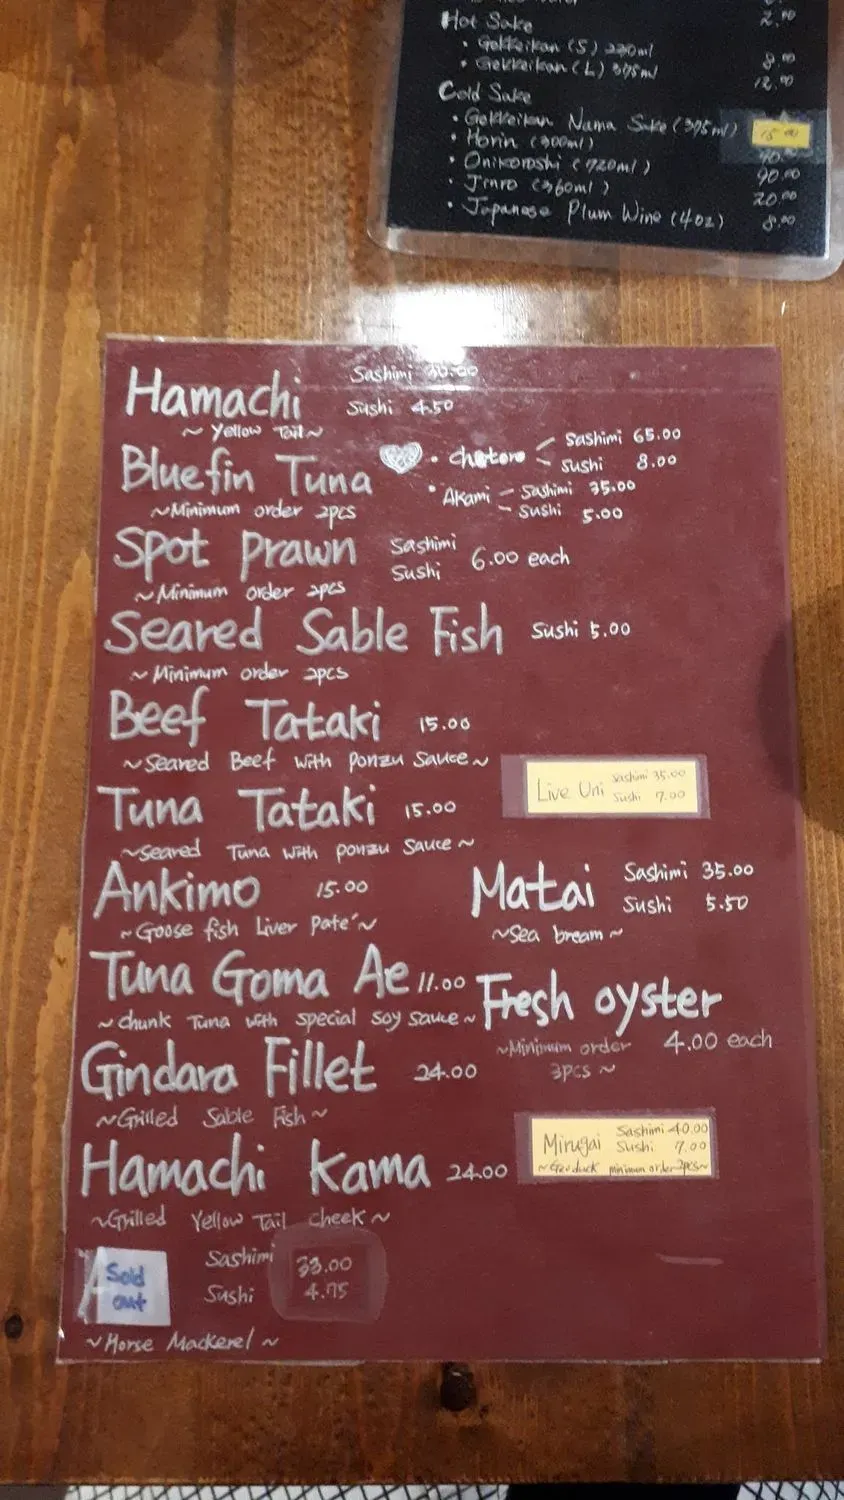 Hot Sake 2.00
• Gekkeikan (S) 230ml 8.00
• Gekkeikan (L) 375ml 12.00
Cold Sake
• Gekkeikan Nama Sake (375ml) 15.00
• Horin (300ml) 40.00
• Onikoroshi (720ml) 90.00
• Jinro (360ml) 20.00
• Japanese Plum Wine (4oz) 8.00
Hamachi Sashimi 30.00
Sushi 4.50
~ Yellow Tail ~
Bluefin Tuna • Chutoro Sashimi 65.00
Sushi 8.00
• Akami Sashimi 35.00
Sushi 5.00
~Minimum order 2pcs
Spot Prawn Sashimi
Sushi 6.00 each
~Minimum order 2pcs
Seared Sable Fish Sushi 5.00
~Minimum order 2pcs
Beef Tataki 15.00
~Seared Beef with Ponzu Sauce~
Live Uni Sashimi 35.00
Sushi 7.00
Tuna Tataki 15.00
~Seared Tuna with ponzu Sauce~
Ankimo 15.00
~Goose fish Liver Pate'~
Matai Sashimi 35.00
Sushi 5.50
~Sea bream~
Tuna Goma Ae 11.00
~chunk Tuna with special soy sauce~
Fresh oyster
~Minimum order 4.00 each
3pcs ~
Gindara Fillet 24.00
~Grilled Sable Fish~
Mirugai Sashimi 40.00
Sushi 7.00
~Geoduck minimum order 2pcs~
Hamachi Kama 24.00
~Grilled Yellow Tail cheek~
Sold
out
Sashimi 33.00
Sushi 4.75
~Horse Mackerel~